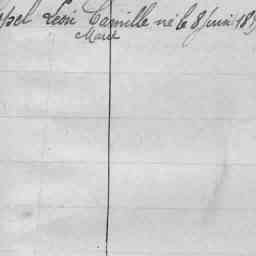 Léon Camille né le 8 juin 18
Marie